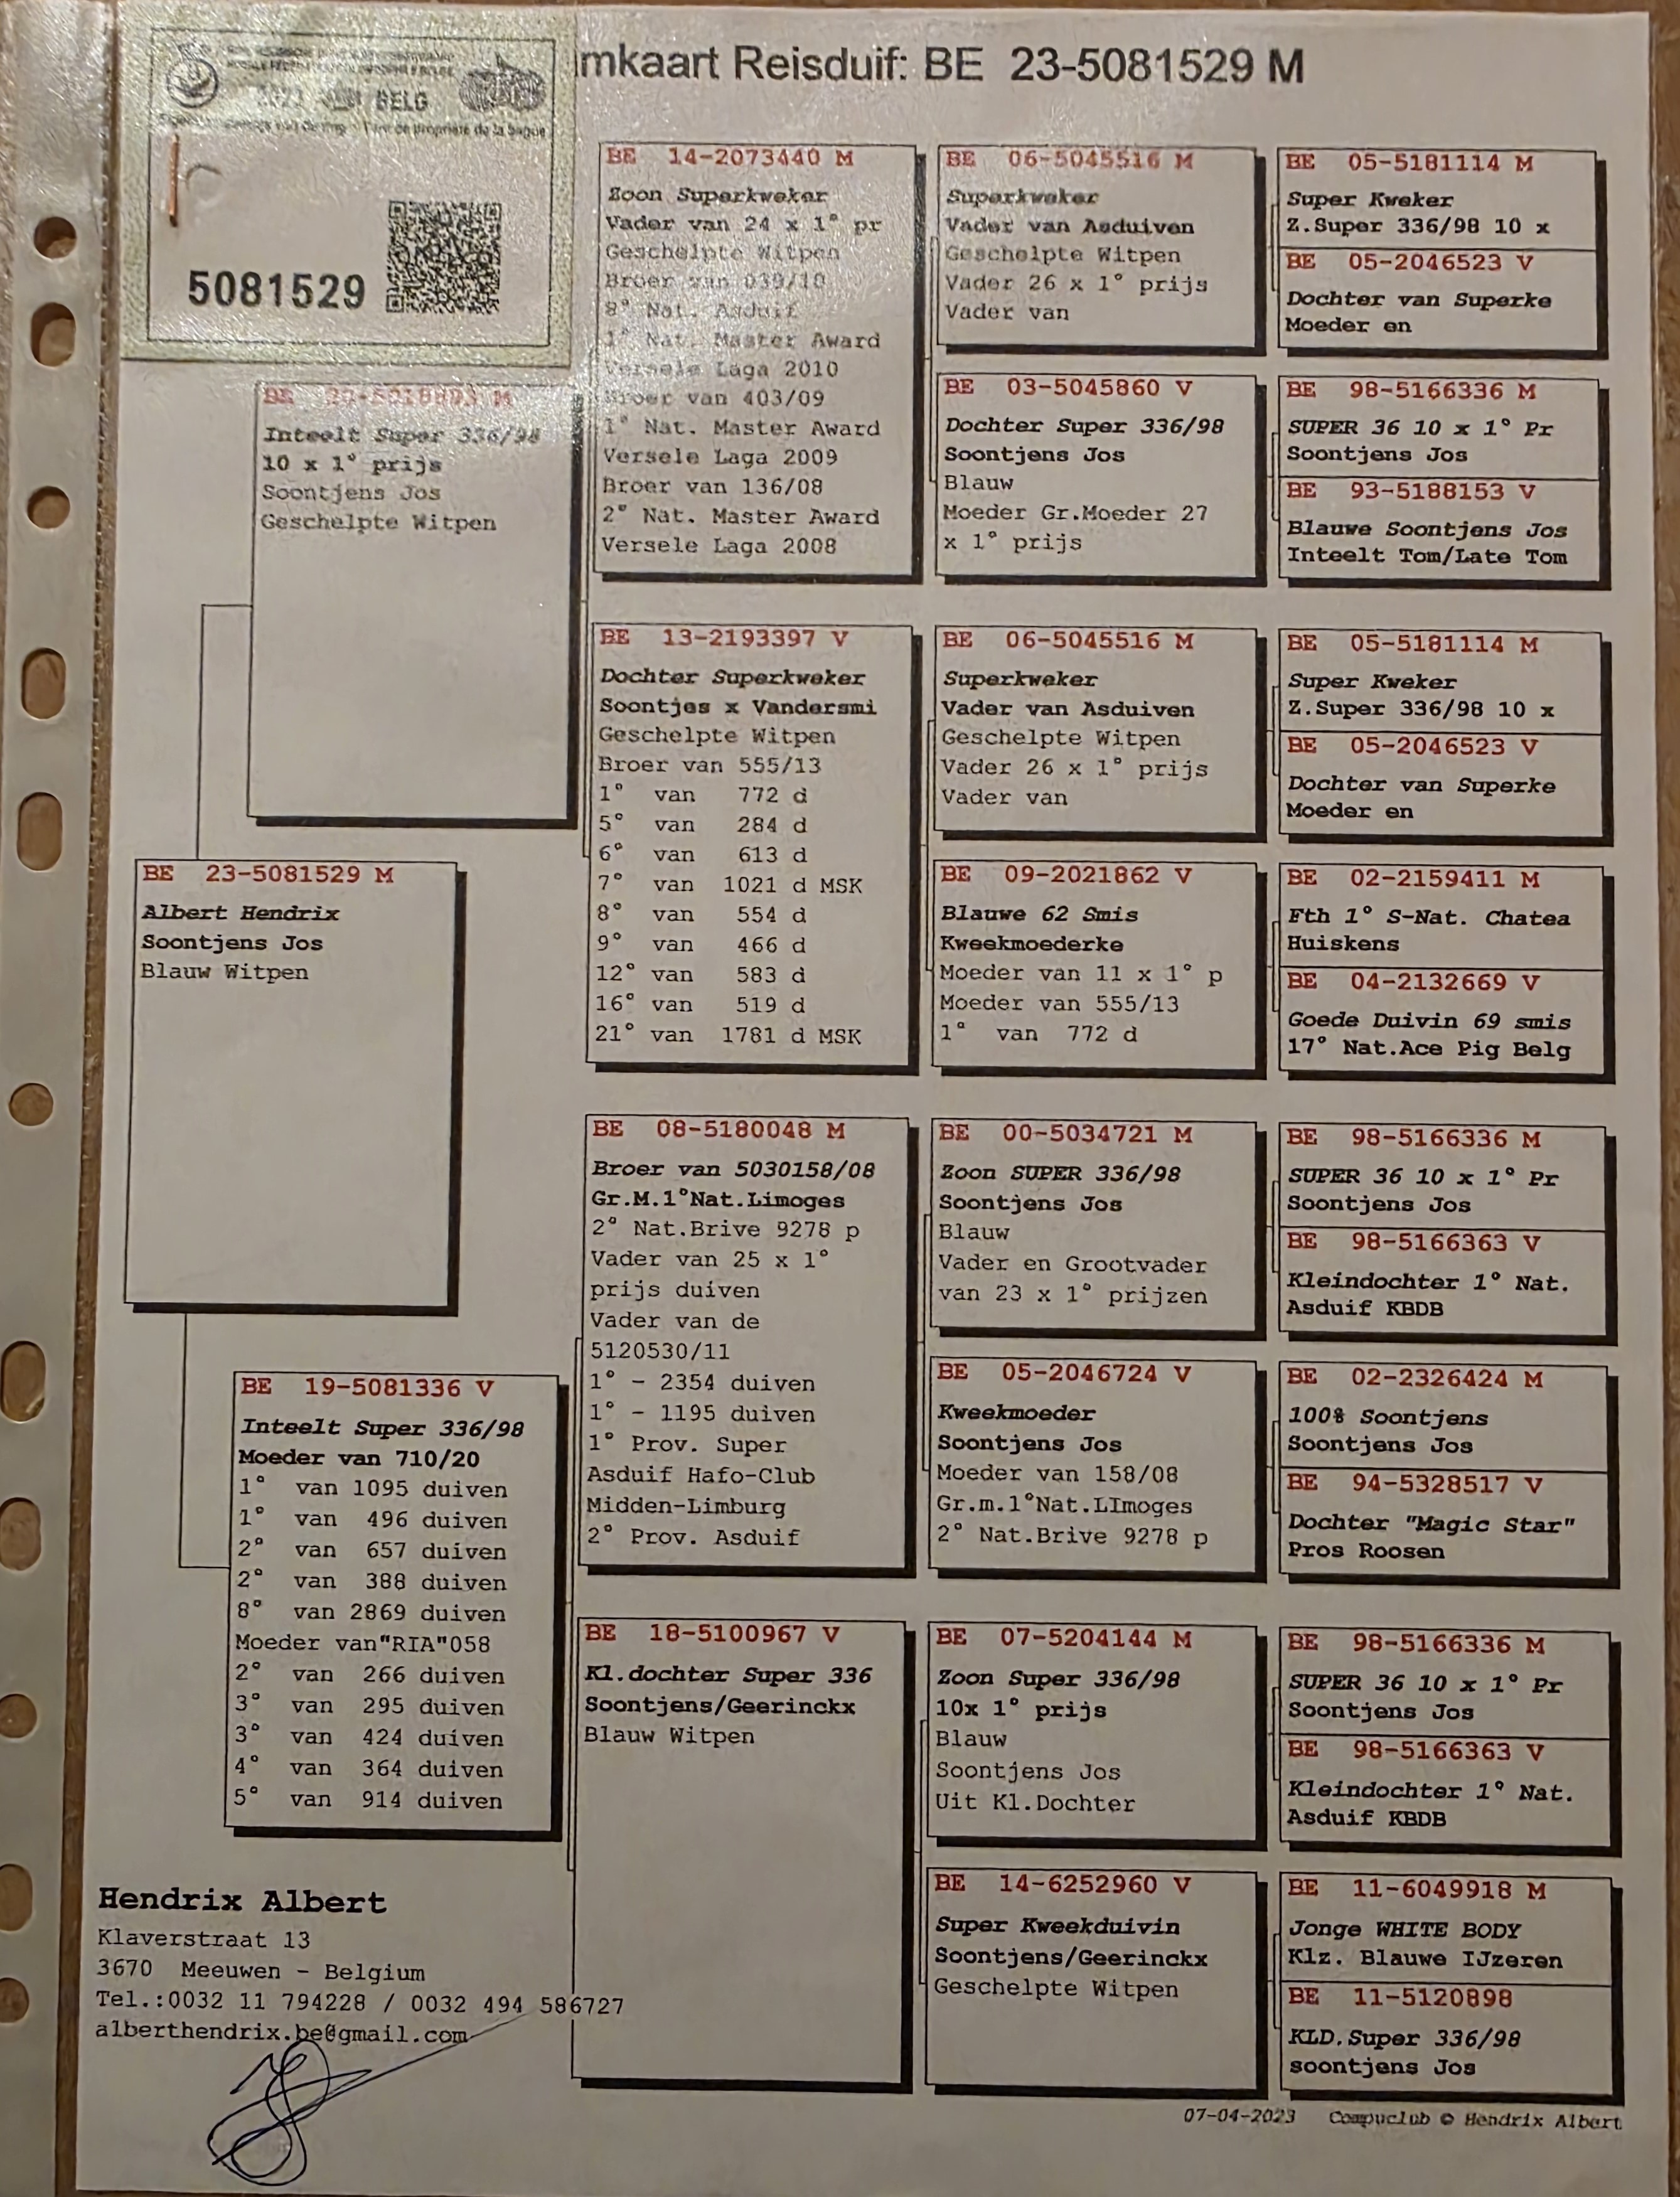 mkaart Reisduif: BE 23-5081529 M
BELG
de propriété de la bague
5081529
BE 23-5081529 M
Albert Hendrix
Soontjens Jos
Blauw Witpen
BE
Inteelt Super 336/98
10 x 1° prijs
Soontjens Jos
Geschelpte Witpen
BE 19-5081336 V
Inteelt Super 336/98
Moeder van 710/20
1° van 1095 duiven
1° van 496 duiven
2° van 657 duiven
2° van 388 duiven
8° van 2869 duiven
Moeder van"RIA"058
2° van 266 duiven
3° van 295 duiven
3° van 424 duiven
4° van 364 duiven
5° van 914 duiven
BE 14-2073440 M
Zoon Superkweker
Vader van 24 x 1° pr
Geschelpte Witpen
Broer van 039/10
8° Nat. Asduif
1° Nat. Master Award
Versele Laga 2010
Broer van 403/09
1° Nat. Master Award
Versele Laga 2009
Broer van 136/08
2° Nat. Master Award
Versele Laga 2008
BE 13-2193397 V
Dochter Superkweker
Soontjes x Vandersmi
Geschelpte Witpen
Broer van 555/13
1° van 772 d
5° van 284 d
6° van 613 d
7° van 1021 d MSK
8° van 554 d
9° van 466 d
12° van 583 d
16° van 519 d
21° van 1781 d MSK
BE 08-5180048 M
Broer van 5030158/08
Gr.M.1°Nat.Limoges
2° Nat.Brive 9278 p
Vader van 25 x 1°
prijs duiven
Vader van de
5120530/11
1° - 2354 duiven
1° - 1195 duiven
1° Prov. Super
Asduif Hafo-Club
Midden-Limburg
2° Prov. Asduif
BE 18-5100967 V
Kl.dochter Super 336
Soontjens/Geerinckx
Blauw Witpen
BE 06-5045516 M
Superkweker
Vader van Asduiven
Geschelpte Witpen
Vader 26 x 1° prijs
Vader van
BE 03-5045860 V
Dochter Super 336/98
Soontjens Jos
Blauw
Moeder Gr.Moeder 27
x 1° prijs
BE 06-5045516 M
Superkweker
Vader van Asduiven
Geschelpte Witpen
Vader 26 x 1° prijs
Vader van
BE 09-2021862 V
Blauwe 62 Smis
Kweekmoederke
Moeder van 11 x 1° p
Moeder van 555/13
1° van 772 d
BE 00-5034721 M
Zoon SUPER 336/98
Soontjens Jos
Blauw
Vader en Grootvader
van 23 x 1° prijzen
BE 05-2046724 V
Kweekmoeder
Soontjens Jos
Moeder van 158/08
Gr.m.1°Nat.LImoges
2° Nat.Brive 9278 p
BE 07-5204144 M
Zoon Super 336/98
10x 1° prijs
Blauw
Soontjens Jos
Uit Kl.Dochter
BE 14-6252960 V
Super Kweekduivin
Soontjens/Geerinckx
Geschelpte Witpen
BE 05-5181114 M
Super Kweker
Z.Super 336/98 10 x
BE 05-2046523 V
Dochter van Superke
Moeder en
BE 98-5166336 M
SUPER 36 10 x 1° Pr
Soontjens Jos
BE 93-5188153 V
Blauwe Soontjens Jos
Inteelt Tom/Late Tom
BE 05-5181114 M
Super Kweker
Z.Super 336/98 10 x
BE 05-2046523 V
Dochter van Superke
Moeder en
BE 02-2159411 M
Fth 1° S-Nat. Chatea
Huiskens
BE 04-2132669 V
Goede Duivin 69 smis
17° Nat.Ace Pig Belg
BE 98-5166336 M
SUPER 36 10 x 1° Pr
Soontjens Jos
BE 98-5166363 V
Kleindochter 1° Nat.
Asduif KBDB
BE 02-2326424 M
100% Soontjens
Soontjens Jos
BE 94-5328517 V
Dochter "Magic Star"
Pros Roosen
BE 98-5166336 M
SUPER 36 10 x 1° Pr
Soontjens Jos
BE 98-5166363 V
Kleindochter 1° Nat.
Asduif KBDB
BE 11-6049918 M
Jonge WHITE BODY
Klz. Blauwe IJzeren
BE 11-5120898
KLD.Super 336/98
soontjens Jos
Hendrix Albert
Klaverstraat 13
3670 Meeuwen - Belgium
Tel.:0032 11 794228 / 0032 494 586727
alberthendrix.be@gmail.com
07-04-2023 Compuclub © Hendrix Albert